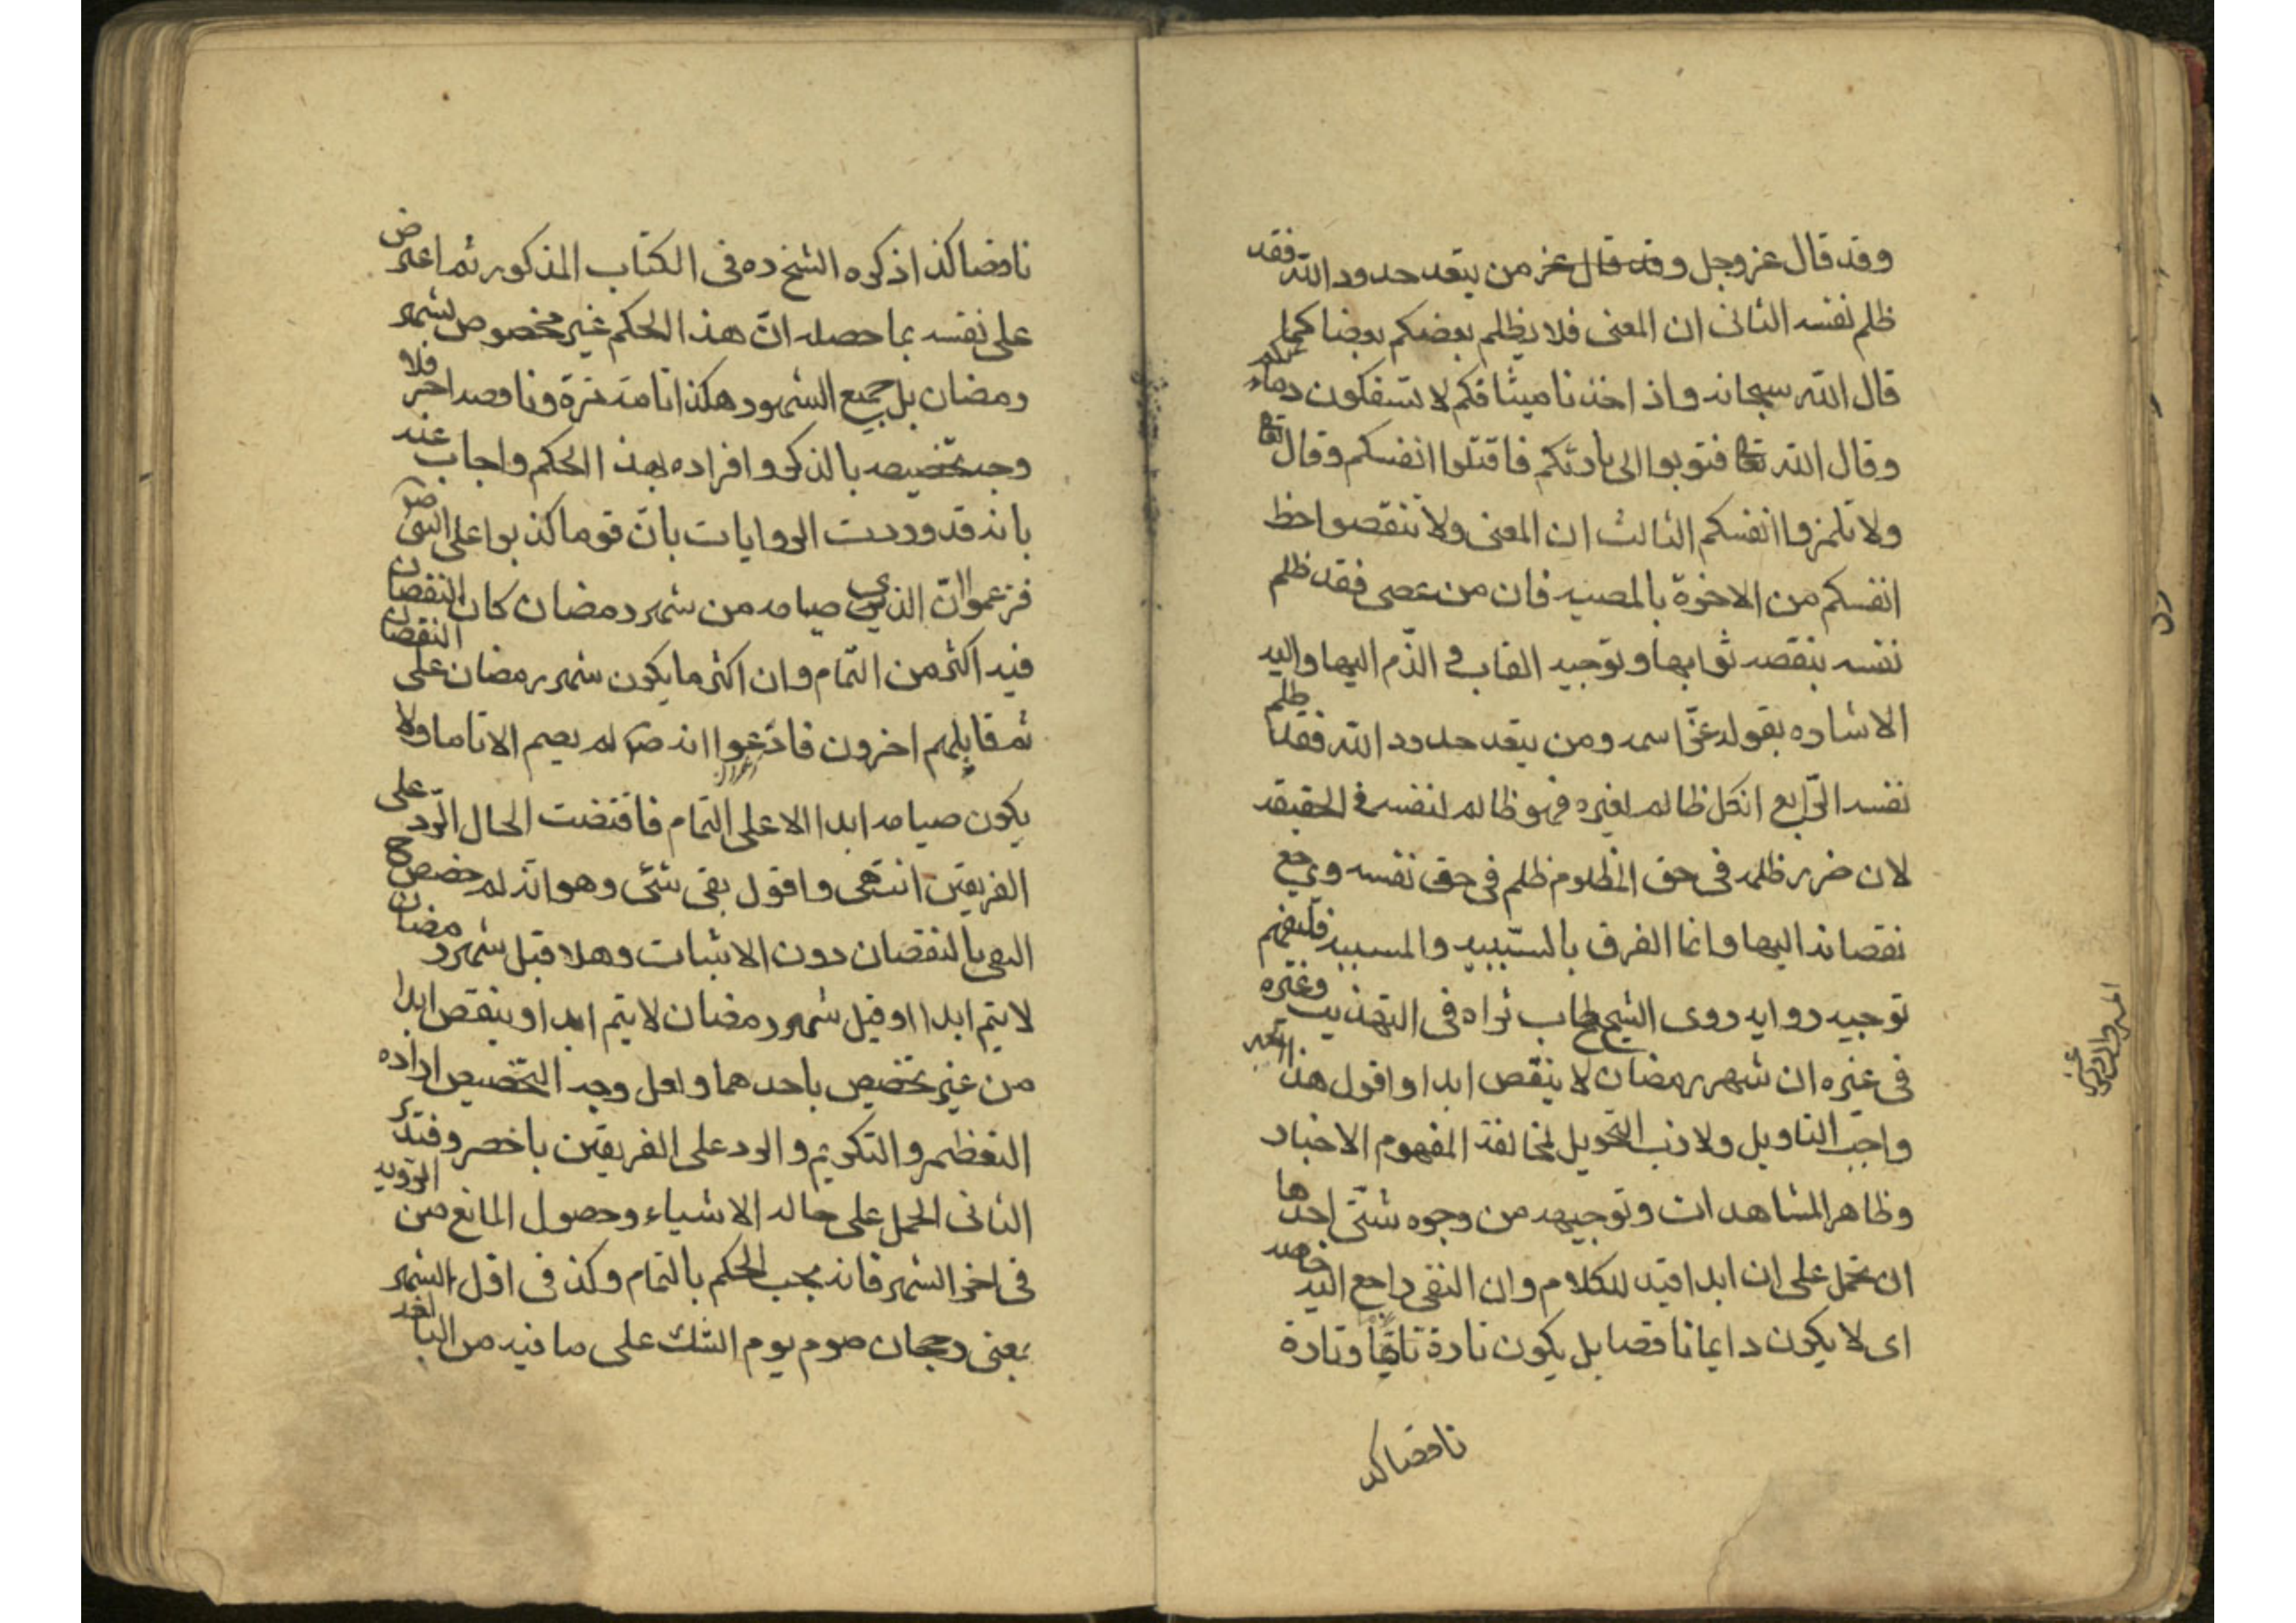 وقد قال عز وجل وقد قال عز من يتعد حدود الله فقد
ظلم نفسه الثانى ان المعنى فلا يظلم بعضكم بعضا كما
قال الله سبحانه واذ اخذنا ميثاقكم لا تسفكون دماءكم
وقال الله تعا فتوبوا الى بارئكم فاقتلوا انفسكم وقال تعا
ولا تلمزوا انفسكم الثالث ان المعنى ولا تنقصوا حظ
انفسكم من الاخرة بالمعصيه فان من عصى فقد ظلم
نفسه بنقصه ثوابها وتوجيه العاب و الذم اليها واليه
الاشاره بقوله عزّ اسمه ومن يتعد حدود الله فقد ظلم
نفسه الرّابع ان كل ظالم لغيره فهو ظالم لنفسه فى الحقيقه
لان ضرر ظلمه فى حق المظلوم ظلم فى حق نفسه ويرجع
نقصانه اليها وانما الفرق بالسّببيه والمسببيه فليفهم
توجيه روايه روى الشيخ طاب ثراه فى التهذيب وغيره
فى غيره ان شهر رمضان لا ينقص ابدا واقول هذا الخبر
واجب التاويل ولازب التحويل لمخالفة المفهوم الاخبار
وظاهر المشاهدات وتوجيهه من وجوه شتّى احدها
ان تحمل على ان ابدا قيد للكلام وان النفى راجع اليه خاصه
اى لا يكون دايما ناقصا بل يكون تارة تامّا وتارة
ناقصا كذ
ناقصا كذا ذكره الشيخ ره فى الكتاب المذكور ثم اعترض
على نفسه بما حصله انّ هذا الحكم غير مخصوص بشهر
رمضان بل جميع الشهور هكذا تامة مرة وناقصه اخر فلا
وجه تخصيصه بالذكر وافراده بهذا الحكم واجاب عنه
بانه قد وردت الروايات بانّ قوما كذبوا على النبى ص
فزعموا انّ الذى صيامه من شهر رمضان كان النقصان
فيه اكثر من التّمام وان اكثر ما يكون شهر رمضان على النقصان
ثم قابلهم اخرون فادّعوا انه ص لم يصم الا تاما ولا
يكون صيامه ابدا الا على التمام فاقتضت الحال الرّد على
الفريقين انتهى واقول بقى شئ وهو انّه لم خصص ح
النفى بالنقصان دون الاثبات وهلا قبل شهر رمضان
لا يتم ابدا او قيل شهر رمضان لا يتم ابدا وينقص ابدا
من غير تخصيص باحدهما ولعل وجه التخصيص اراده
التعظيم والتكريم والرد على الفريقين باخصر وفتدبر
الثانى الحمل على حاله الاشياء وحصول المانع من الرؤيه
فى اخر الشهر فانه يجب الحكم بالتمام وكذ فى اوّل الشهر
بمعنى رجحان صوم يوم الشك على ما فيه من